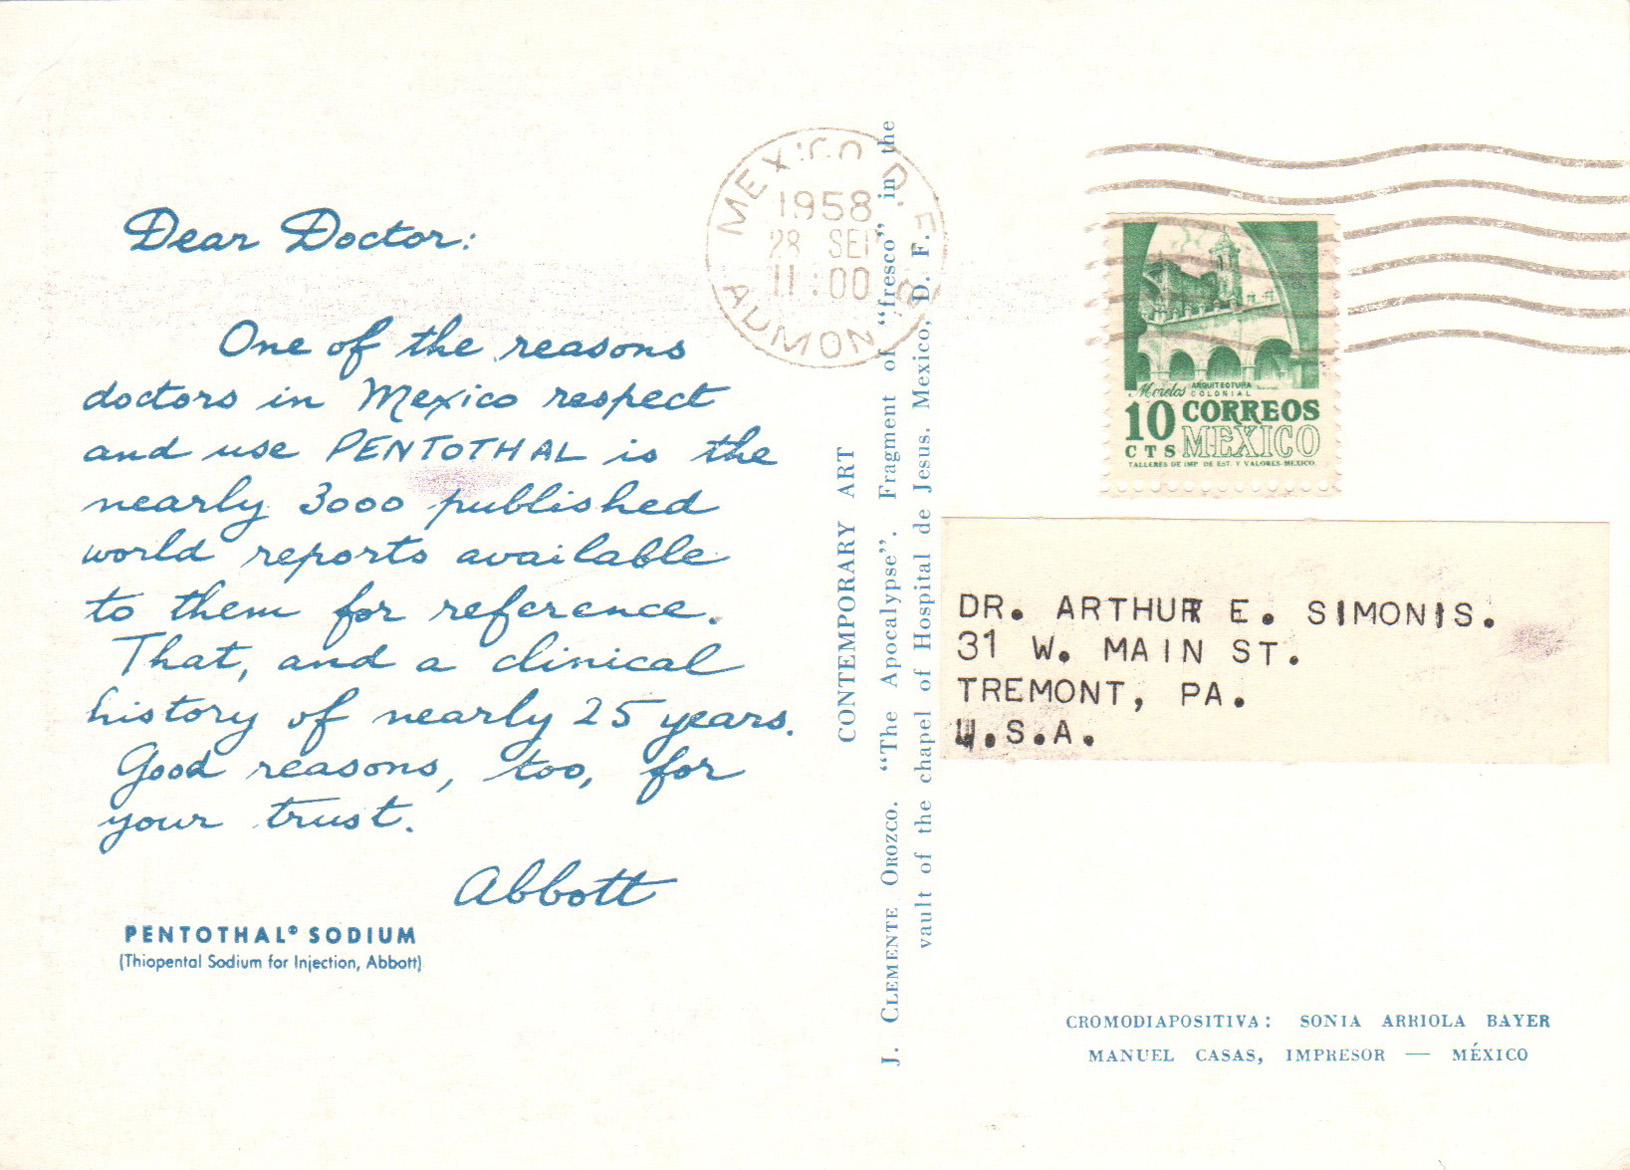 Dear Doctor:
One of the reasons
doctors in Mexico respect
and use PENTOTHAL is the
nearly 3000 published
world reports available
to them for reference.
That, and a clinical
history of nearly 25 years.
Good reasons, too, for
your trust.
Abbott
PENTOTHAL® SODIUM
(Thiopental Sodium for Injection, Abbott)
CONTEMPORARY ART
J. CLEMENTE OROZCO. "The Apocalypse". Fragment of "fresco" in the
vault of the chapel of Hospital de Jesus. Mexico, D. F.
MEXICO D. F.
1958
28 SEP
11:00
ADMON
Morelos ARQUITECTURA
COLONIAL
10 CORREOS
CTS MEXICO
TALLERES DE IMP. DE EST. Y VALORES-MEXICO.
DR. ARTHUR E. SIMONIS.
31 W. MAIN ST.
TREMONT, PA.
U.S.A.
CROMODIAPOSITIVA: SONIA ARRIOLA BAYER
MANUEL CASAS, IMPRESOR — MÉXICO